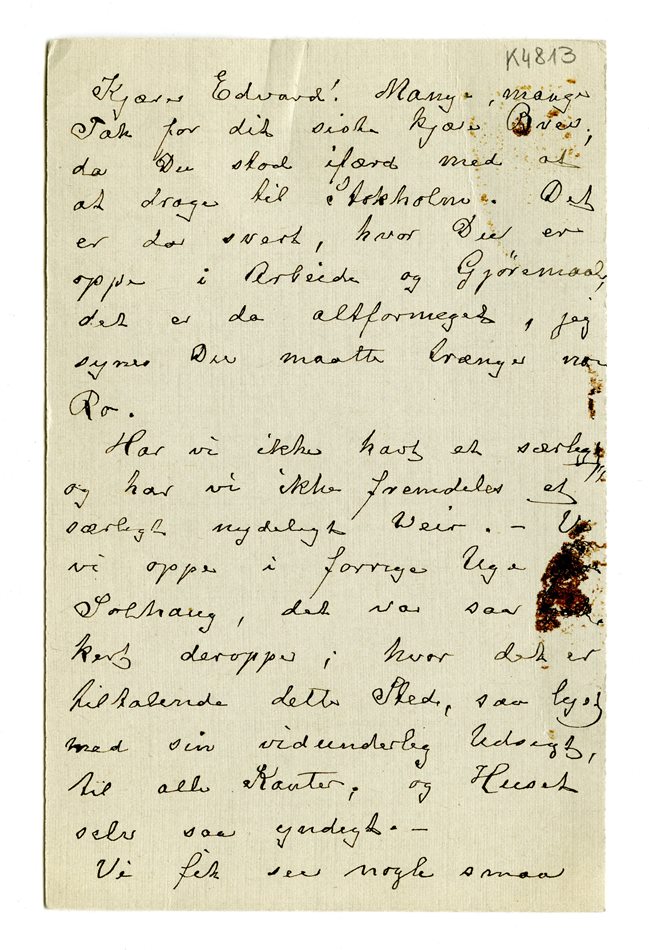 K4813
Kjære Edvard! Mange, mange
Tak for dit siste kjære Brev,
da Du stod ifærd med at
at drage til Stokholm. Det
er da svert, hvor Du er
oppe i Arbeide og Gjøremaal,
det er da altformeget, jeg
synes Du maatte trænge noe
Ro.
Har vi ikke havt et særligt
og har vi ikke fremdeles et
særligt nydeligt Veir. – Vi
vi oppe i forrige Uge
Solhaug, det var saa
kert deroppe; hvor det er
tiltalende dette Sted, saa lyst
med sin vidunderlig Udsigt,
til alle Kanter, og Huset
selv saa yndigt. –
Vi fik see nogle smaa